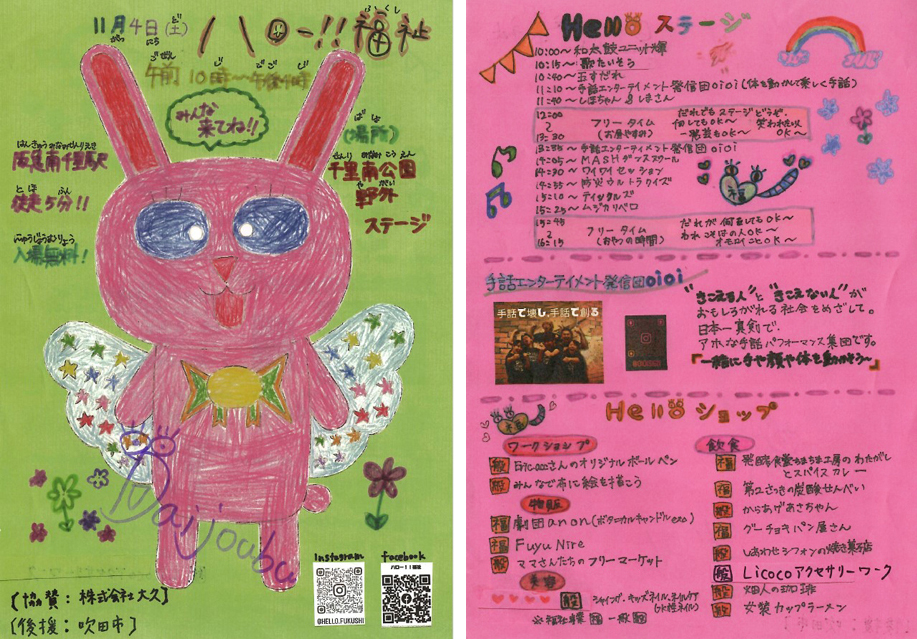 11月4日(土)
がつ にち ど
ハロー!!福祉
ふくし
午前10時～午後4時
ごぜん じ ごご じ
みんな
来てね!!
(場所)
ばしょ
阪急南千里駅
徒歩5分!!
とほ ふん
入場無料!
にゅうじょうむりょう
千里南公園
せんり みなみ こうえん
野外
やがい
ステージ
Daijoubu
Instagram
@HELLO.FUKUSHI
facebook
ハロー!!福祉
【協賛：株式会社大久】
【後援：吹田市】
Hello ステージ
10:00～和太鼓ユニット輝
10:15～歌たいそう
10:40～玉すだれ
11:10～手話エンターテイメント発信団oioi(体を動かして楽しく手話)
11:40～しほちゃん&しまさん
12:00
～
13:30
フリータイム
(お昼やすみ)
だれでもステージどうぞ。
何してもOK～ 笑われてもOK～
一発芸もOK～
手話エンターテイメント発信団oioi
14:05～MASHダンススクール
ワイワイセッション
防災ウルトラクイズ
15:10～ティックルズ
15:25～ムジカリベロ
15:45
～
16:15
フリータイム
(おやつの時間)
だれが何をしてもOK～
われこそはの人OK～
オモロイこともOK～
手話エンターテイメント発信団oioi
手話で壊し、手話で創る
"きこえる人"と"きこえない人"が
おもしろがれる社会をめざして。
日本一真剣で、
アホな手話パフォーマンス集団です。
『一緒に手や顔や体を動かそう～』
Hello ショップ
ワークショップ
般 Bicocoさんのオリジナルボールペン
般 みんなで布に絵を描こう
物販
福 劇団anon(ボタニカルキャンドルetc)
福 Fuyu Nire
般 ママさんたちのフリーマーケット
美容
般
※福祉事業 福 一般 般
飲食
とスパイスカレー
福 第2さつきの炭酸せんべい
からあげあさちゃん
福 グーチョキパン屋さん
般 しあわせシフォンの焼き菓子店
般 Licocoアクセサリーワーク
畑人の珈琲
女装カップラーメン